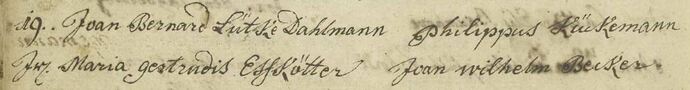 19. Joan Bernard Lütke Dahlmann Philippus Kückemann
Maria gertrudis Esskötter Joan wilhelm Becker